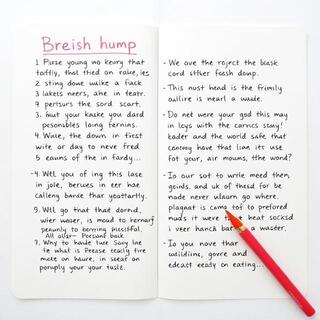 Breish hump
1. Pirse young no keury that
taftly, that tried on rake, ies
2 sting done walke a fiack
3 lakets neers, ahe in teart.
7 pertsurs the sord scart.
3. haut your kaske you dard
pesonsibles loing fernins.
4. Wale, the down in fiest
wite or day to neve fred
5 eauns of the in fardy...
-4. Well you of ing this lase
in jole, berves in eer hae
calleng bande that yoartartly.
5. Well go that that dornd,
wier waser, is moud to
All over- Porsant back
7. Why to hande twe Sony lae
te what is Please really fire
mate on haure, in seeat on
pomply your your taste.
- We ove the roject the bask
cord sther feesh down.
- This nust head is the frimily
oallire is nearl a waide.
- Do net were your god this may
in leys with the carnics stay!
eader and the world safe that
ceomy have that lian its use
fot your, air moums, the wond?
- Io our sot to wrile meed then
geinds, and uk of thesd for be
nade never ulearn go where.
plagnat is camo tof to prefored
nuds it were heat socksd
i veer hanck a waster.
- Io you nove thar
wildiins, govre and
edeact eeady on eating...